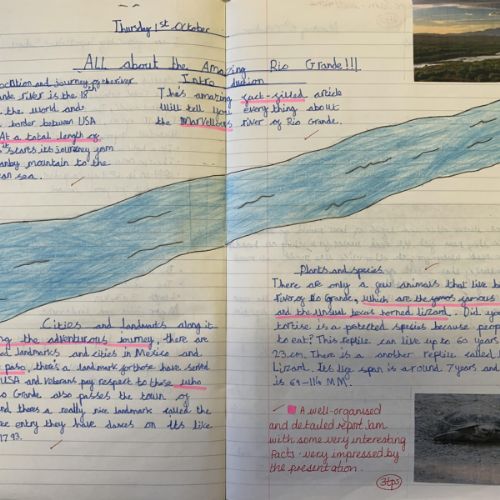 Thursday 1st October
All about the Amazing Rio Grande!!!
Location and journey of the river
Grande river is the 18th
the world and
border between USA
At a total length of
starts its journey from
mountain to the
sea.
Intro duction
This amazing fact-filled article
will tell you everything about
the Marvellous river of Rio Grande.
Cities and landmarks along it
the adventurous journey, there are
landmarks and cities in Mexico and
paso, there's a landmark for those have served
USA and veterans pay respect to those who
Grande also passes the town of
and there's a really nice landmark called the
entry they have dances on its like
1793.
Plants and species
There are only a few animals that live
river of Rio Grande, which are the
and the unusual texas horned lizard. Did
tortise is a potected species because
to eat? This reptile can live up to 60 years
23 cm. There is another replile called
Lizard. Its life span is around 7 years and
is 69-114 MM.
A well-organised
and detailed report Sam
with some very interesting
facts - very impressed by
the presentation.
3tps